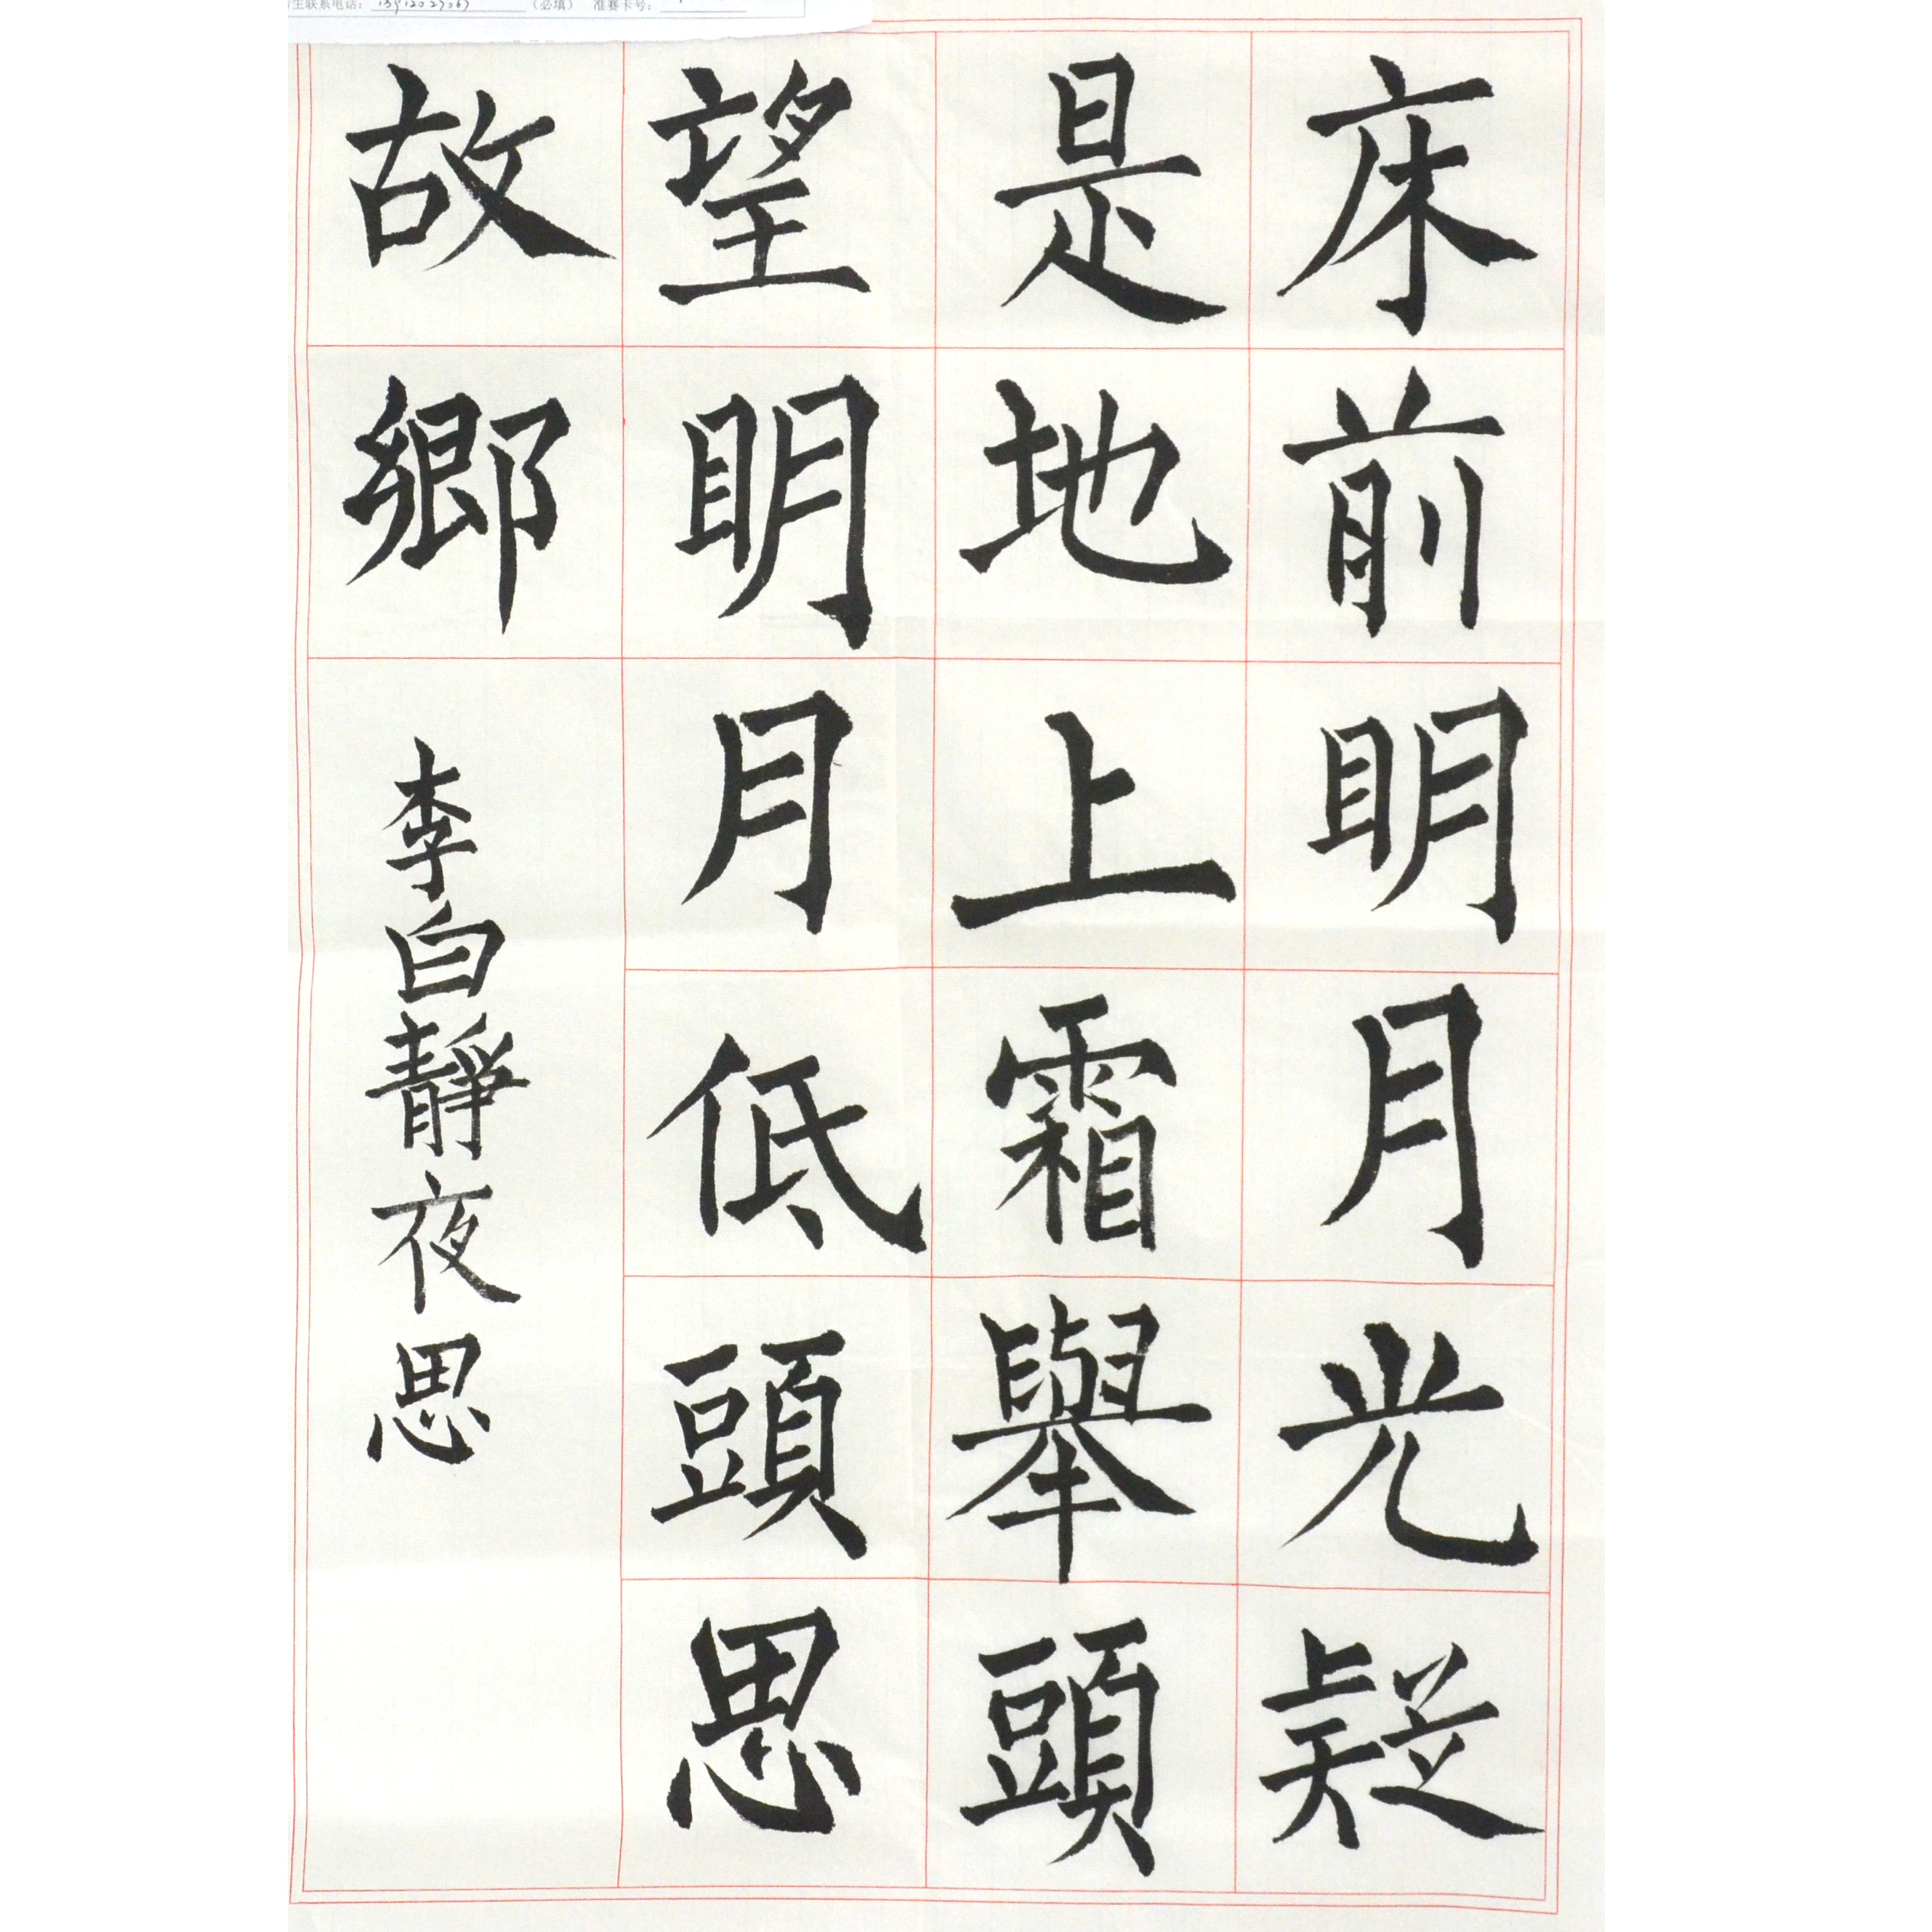 生联系电话：13912027067（必填） 准赛卡号：
床前明月光疑
是地上霜舉頭
望明月低頭思
故鄉
李白靜夜思